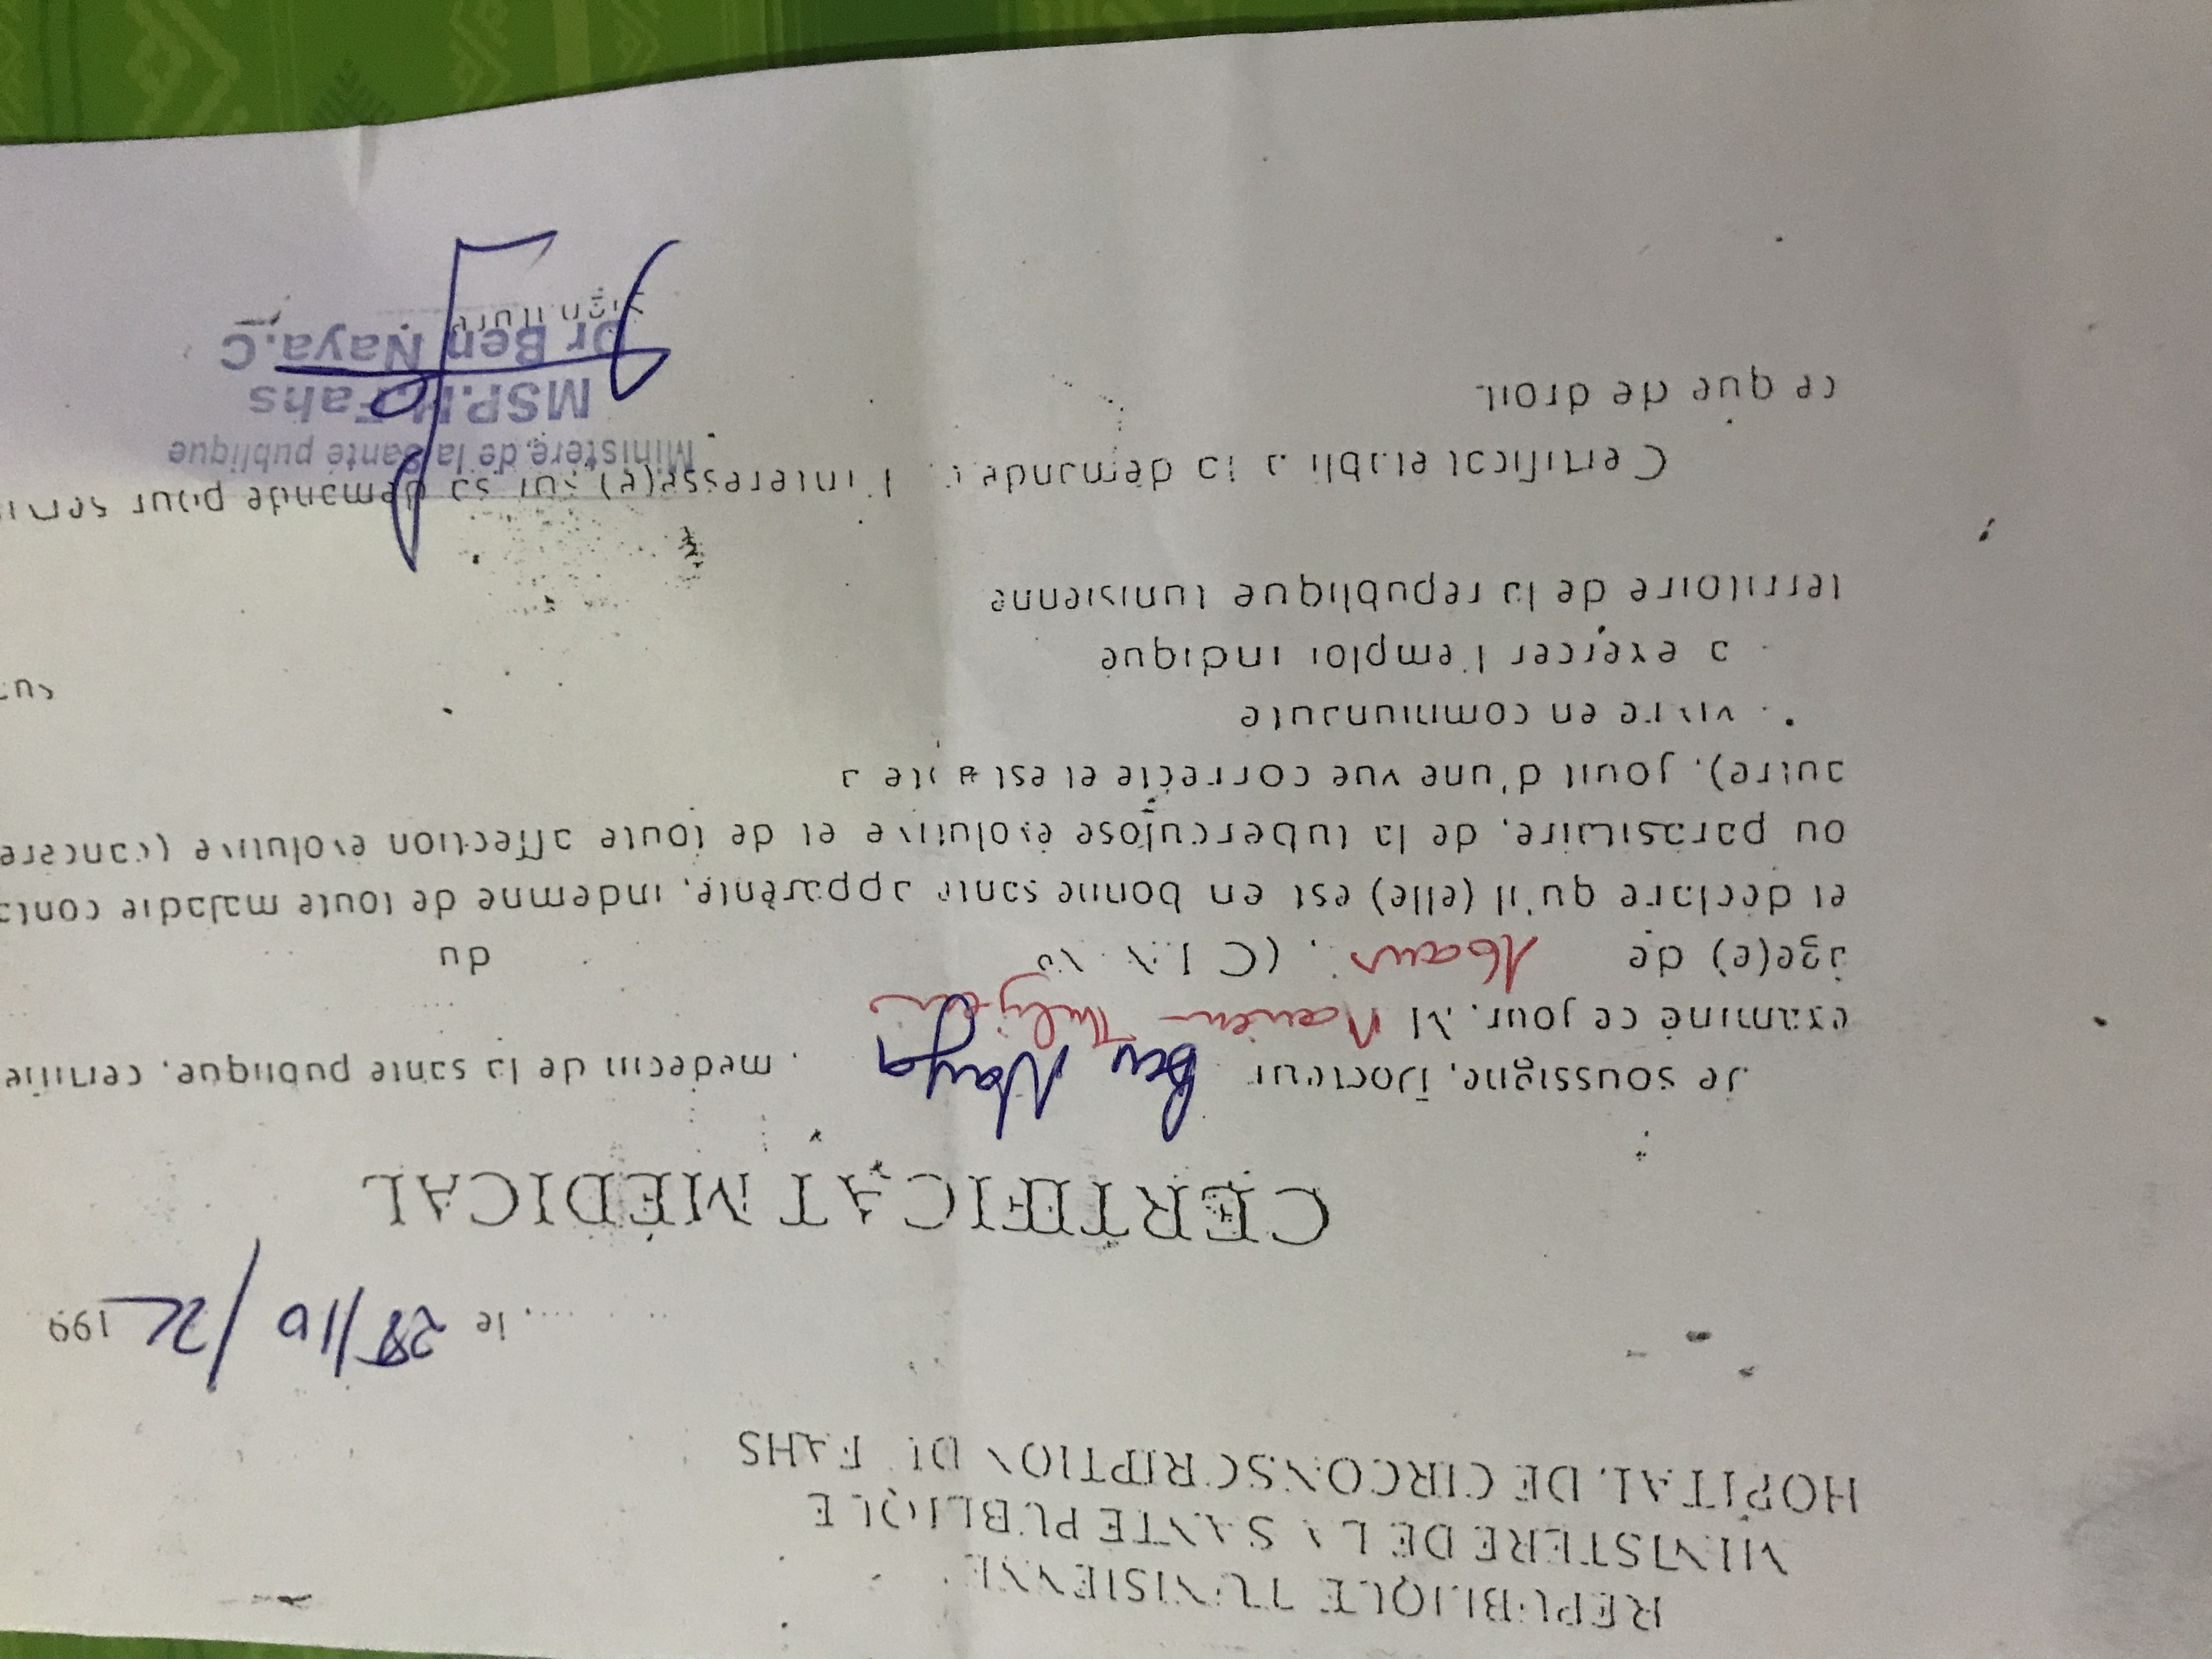 REPUBLIQUE TUNISIENNE
MINISTERE DE LA SANTE PUBLIQUE
HOPITAL DE CIRCONSCRIPTION DE FAHS
le 28/10/ 199
CERTIFICAT MEDICAL
Je soussigne, Docteur Ben Naya, medecin de la sante publique, certifie
examiné ce jour, M
âge(e) de (C.I.N. No du
et déclare qu'il (elle) est en bonne santé apparente, indemne de toute maladie conta
ou parasitaire, de la tuberculose évolutive et de toute affection evolutive (cancere
autre), jouit d'une vue correcte et est apte a
- vivre en communauté
- a exercer l'emploi indique sur
territoire de la republique tunisienne
Certificat etabli a la demande l'interesse(e) sur sa demande pour servi
ce que de droit.
Ministère de la Santé publique
MSP.H.Fahs
Dr Ben Naya.C
Signature